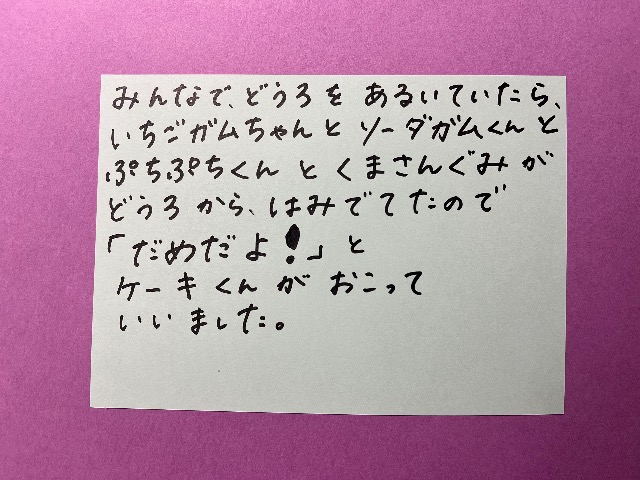 みんなで、どうろを あるいていたら、
いちごガムちゃんと ソーダガムくんと
ぷちぷちくん と くまさんぐみ が
どうろ から、はみでてたので
「だめだよ!」と
ケーキくん が おこって
いいました。